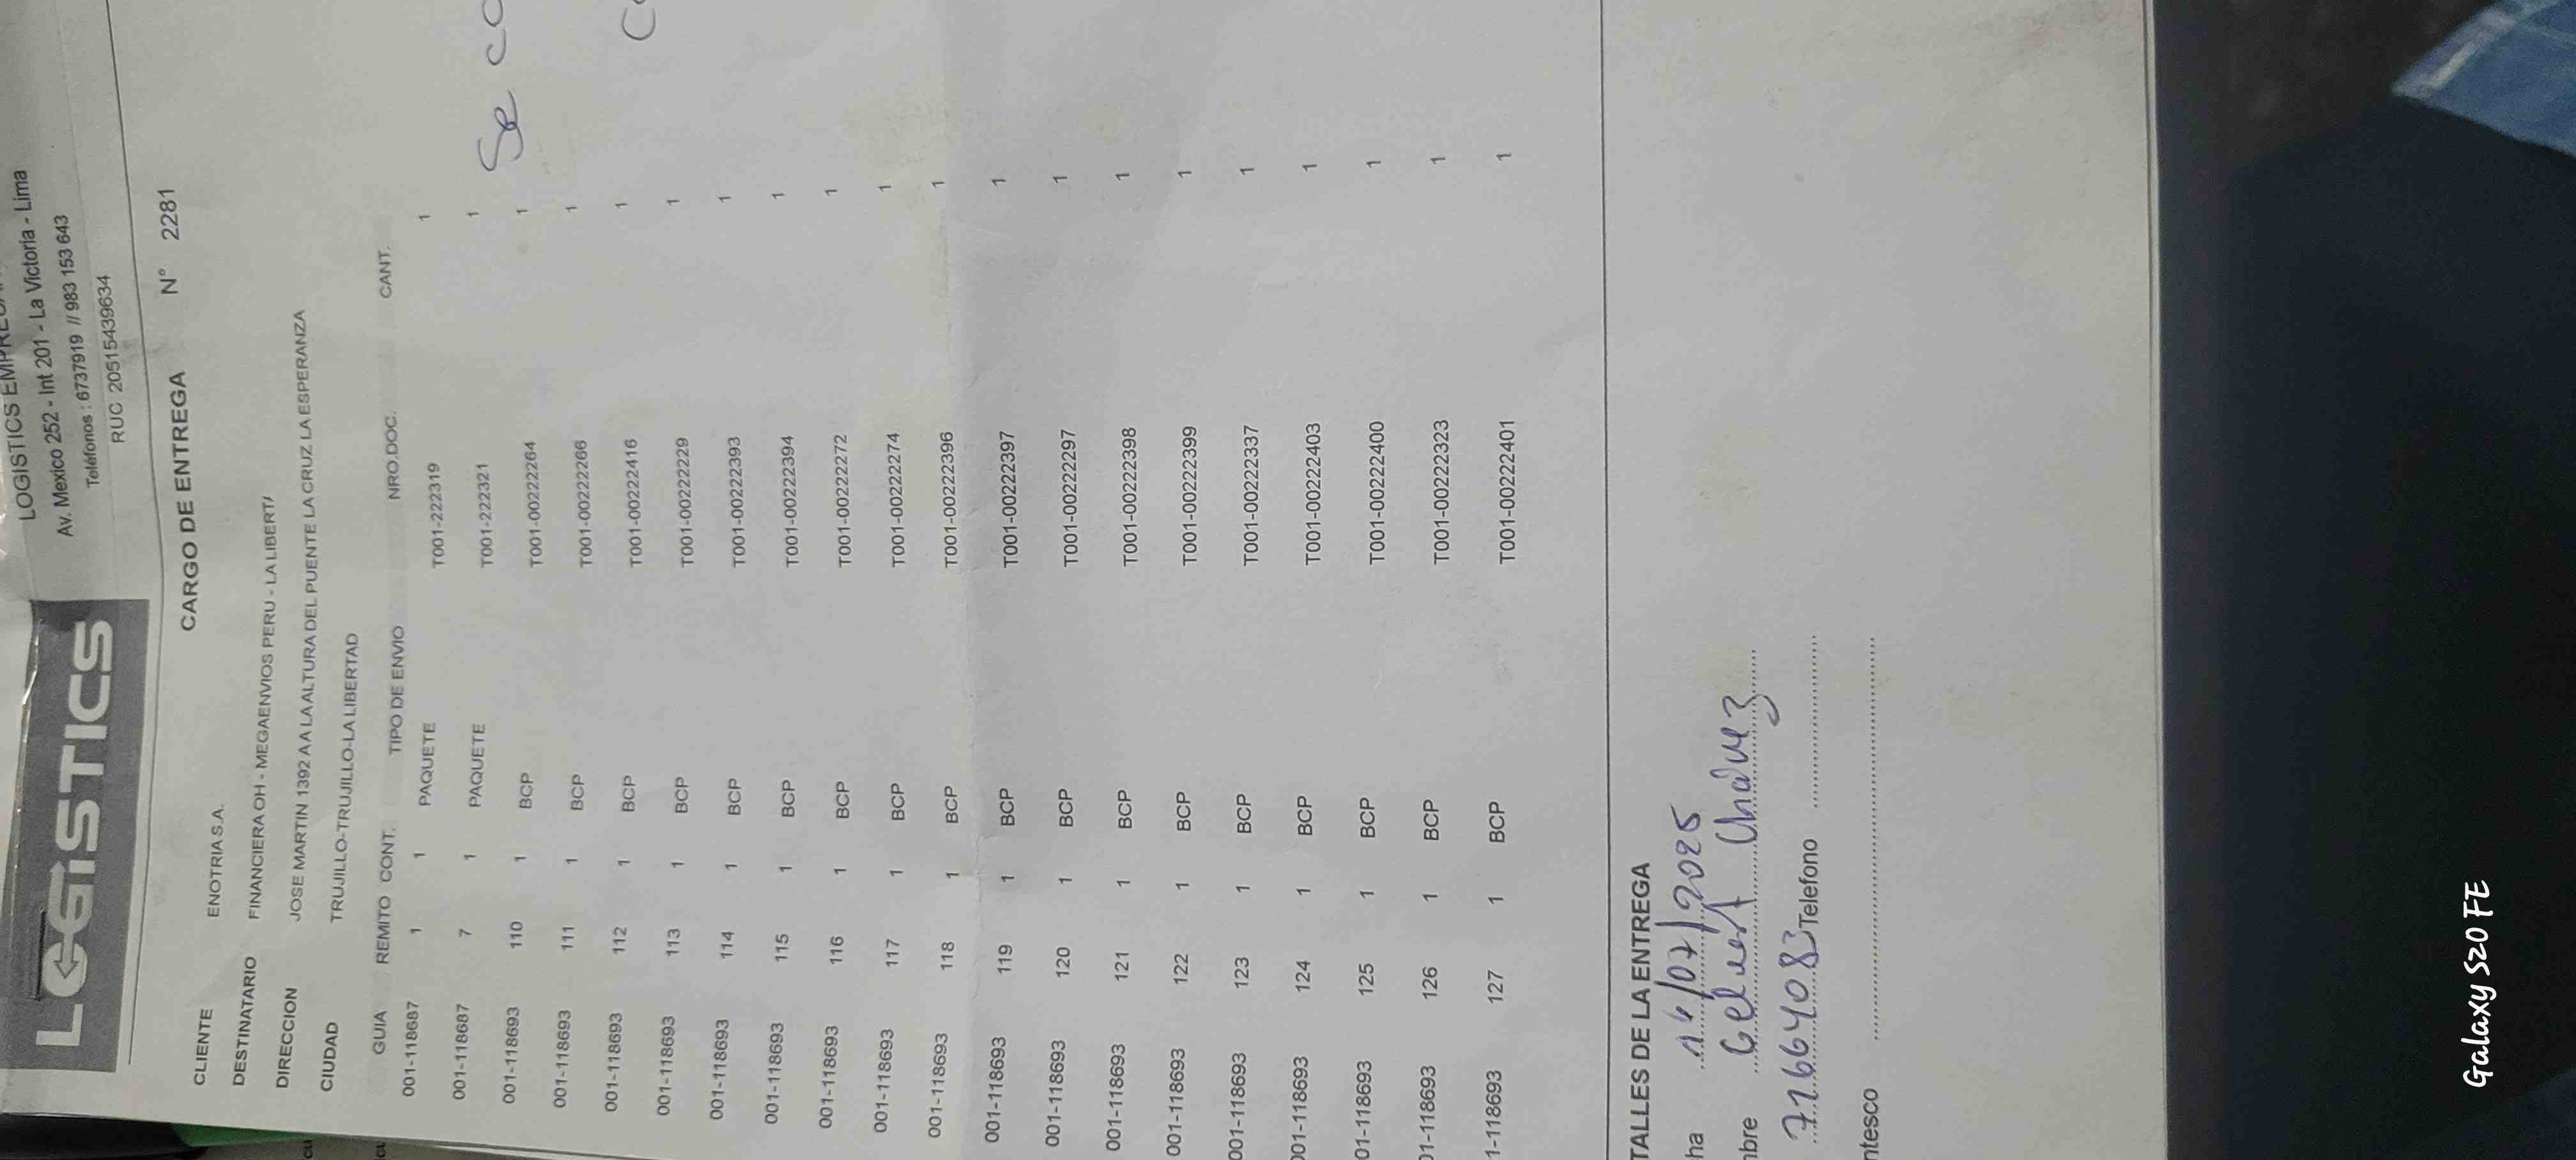 LOGiSTICS
LOGISTICS
Av. Mexico 252 - Int 201 - La Victoria - Lima
Teléfonos : 6737919 // 983 153 643
RUC 20515439634
CARGO DE ENTREGA N° 2281
CLIENTE ENOTRIA S.A.
DESTINATARIO FINANCIERA OH - MEGAENVIOS PERU - LA LIBERT
DIRECCION JOSE MARTIN 1392 AA LA ALTURA DEL PUENTE LA CRUZ LA ESPERANZA
CIUDAD TRUJILLO-TRUJILLO-LA LIBERTAD
GUIA REMITO CONT. TIPO DE ENVIO NRO.DOC. CANT.
001-118687 1 1 PAQUETE T001-222319 1
001-118687 7 1 PAQUETE T001-222321 1
001-118693 110 1 BCP T001-00222264 1
Se
001-118693 111 1 BCP T001-00222266 1
001-118693 112 1 BCP T001-00222416 1
001-118693 113 1 BCP T001-00222229 1
001-118693 114 1 BCP T001-00222393 1
001-118693 115 1 BCP T001-00222394 1
001-118693 116 1 BCP T001-00222272 1
001-118693 117 1 BCP T001-00222274 1
001-118693 118 1 BCP T001-00222396 1
001-118693 119 1 BCP T001-00222397 1
001-118693 120 1 BCP T001-00222297 1
001-118693 121 1 BCP T001-00222398 1
001-118693 122 1 BCP T001-00222399 1
001-118693 123 1 BCP T001-00222337 1
001-118693 124 1 BCP T001-00222403 1
01-118693 125 1 BCP T001-00222400 1
01-118693 126 1 BCP T001-00222323 1
1-118693 127 1 BCP T001-00222401 1
TALLES DE LA ENTREGA
ha 16/07/2025
mbre Chavez
71664083 Telefono
ntesco
Galaxy S20 FE